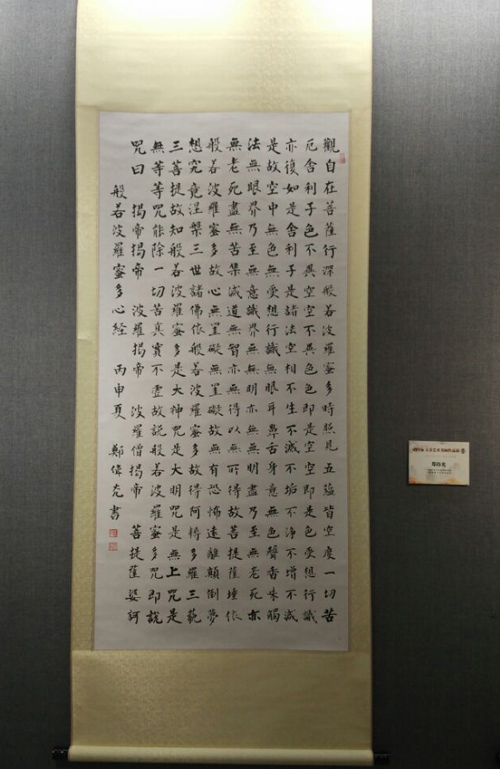 觀自在菩薩行深般若波羅蜜多時照見五蘊皆空度一切苦
厄舍利子色不異空空不異色色即是空空即是色受想行識
亦復如是舍利子是諸法空相不生不滅不垢不淨不增不減
是故空中無色無受想行識無眼耳鼻舌身意無色聲香味觸
法無眼界乃至無意識界無無明亦無無明盡乃至無老死亦
無老死盡無苦集滅道無智亦無得以無所得故菩提薩埵依
般若波羅蜜多故心無罣礙無罣礙故無有恐怖遠離顛倒夢
想究竟涅槃三世諸佛依般若波羅蜜多故得阿耨多羅三藐
三菩提故知般若波羅蜜多是大神咒是大明咒是無上咒是
無等等咒能除一切苦真實不虛故說般若波羅蜜多咒即說
咒曰 揭帝揭帝 波羅揭帝 波羅僧揭帝 菩提薩婆訶
般若波羅蜜多心經 丙申夏 鄭偉光書